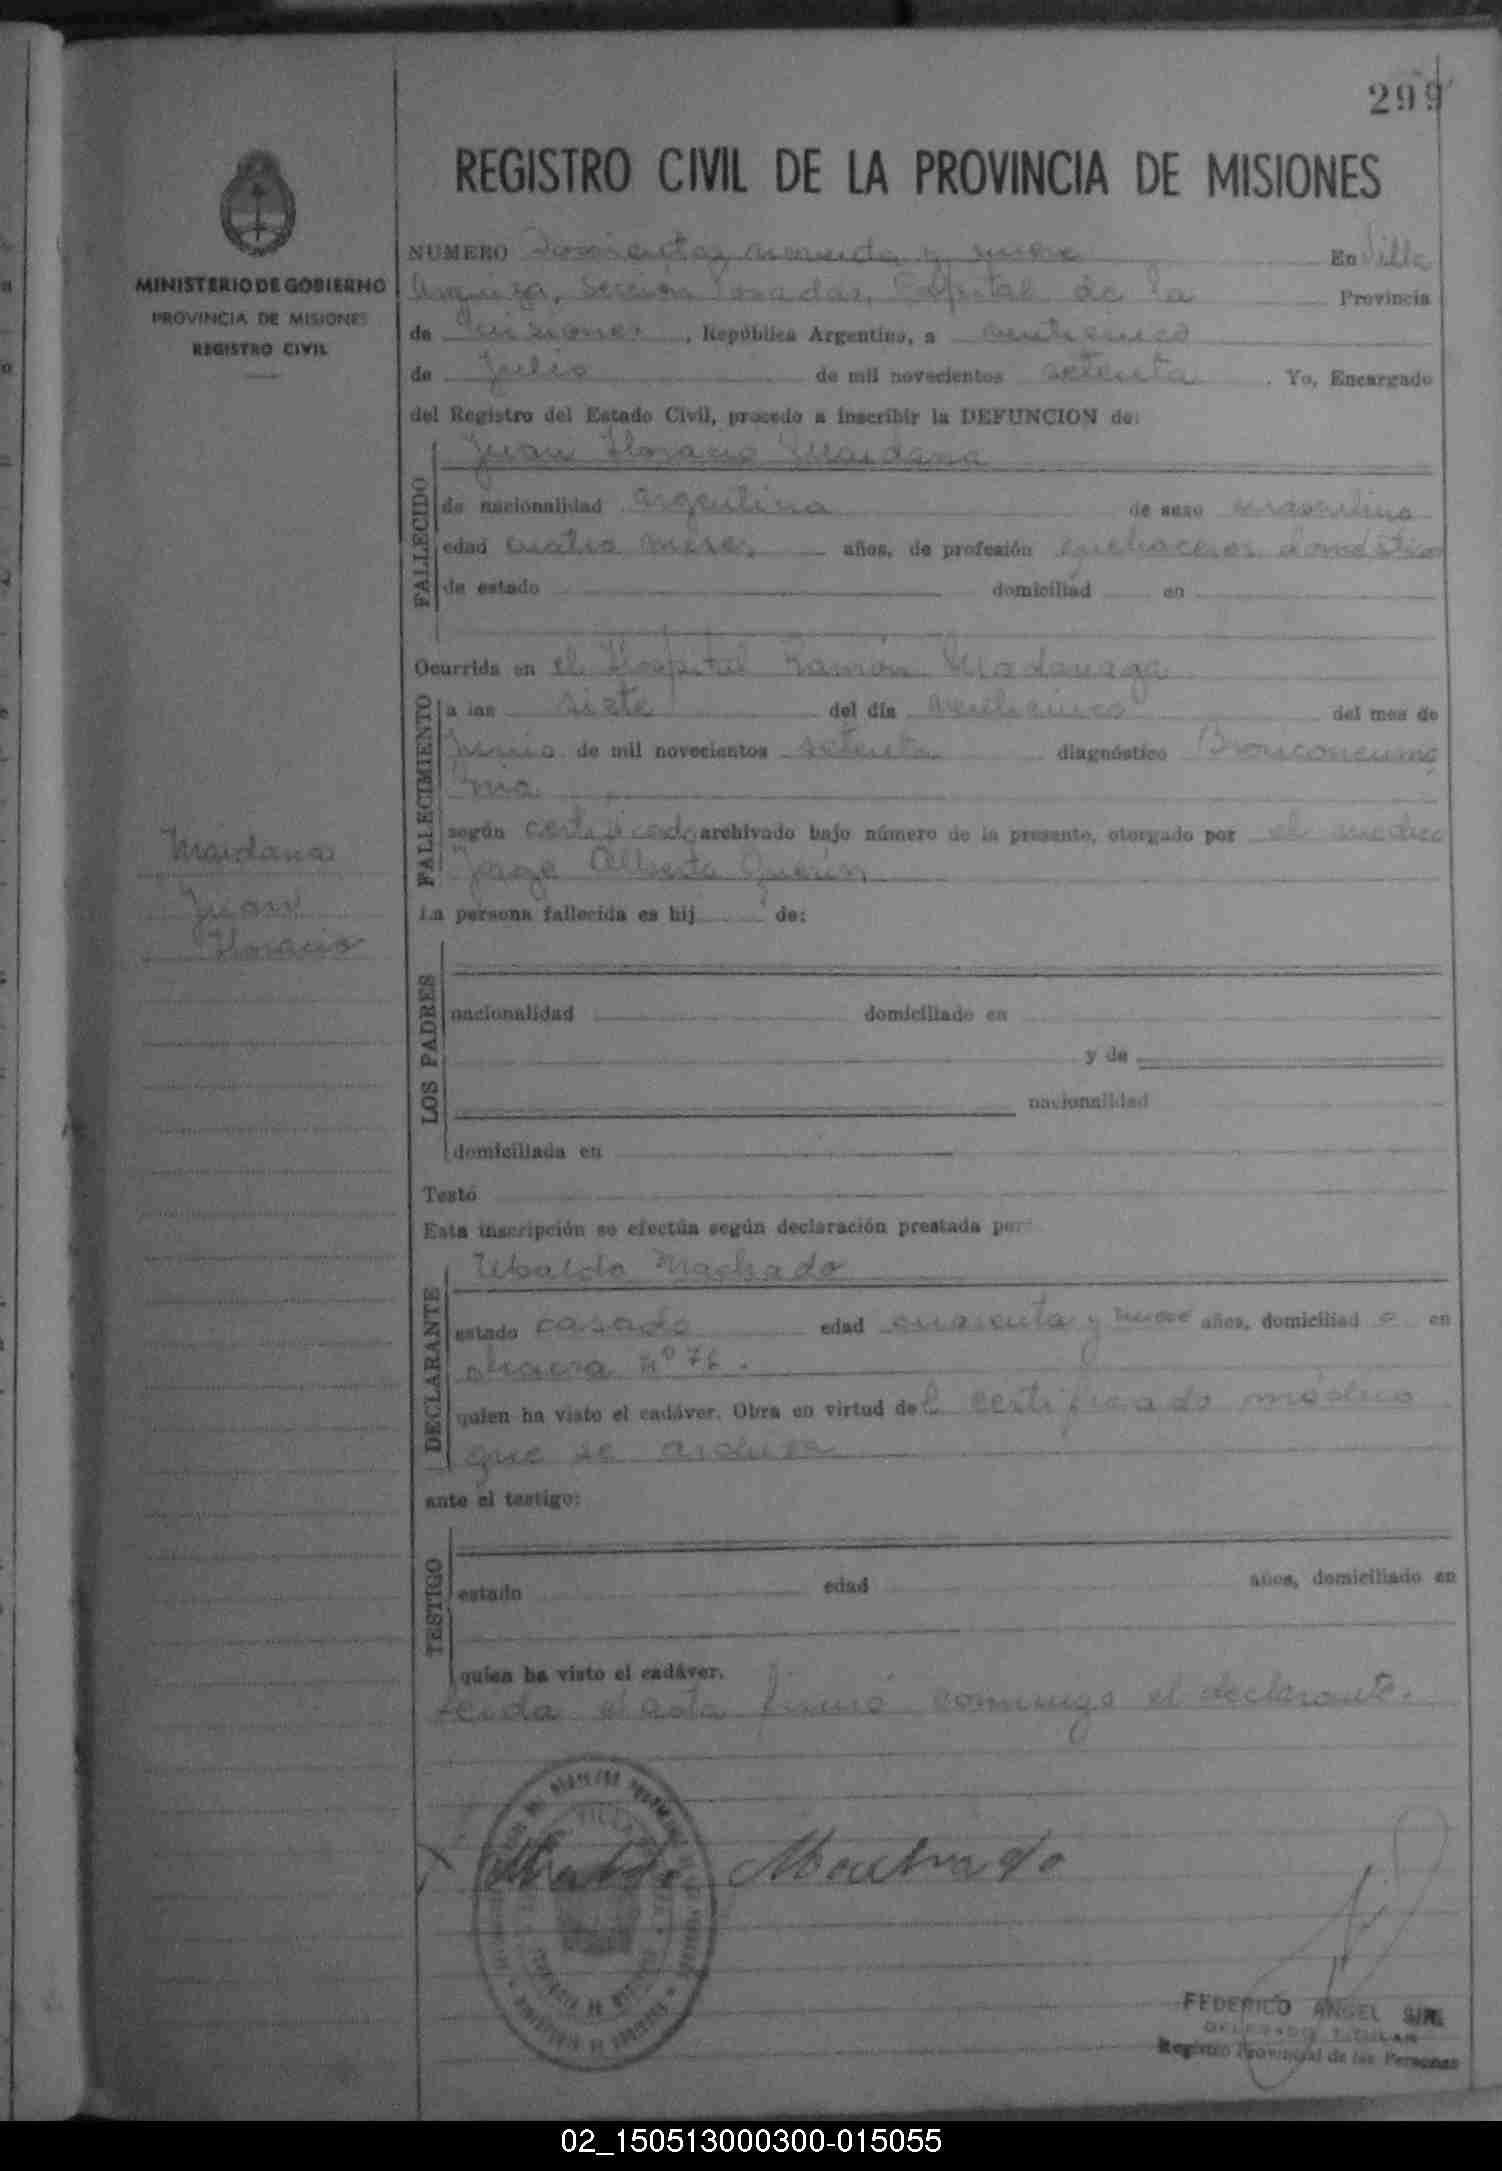 299
REGISTRO CIVIL DE LA PROVINCIA DE MISIONES
MINISTERIO DE GOBIERNO
PROVINCIA DE MISIONES
REGISTRO CIVIL
NUMERO Doscientos noventa y nueve En Villa
Urquiza, Sección Posadas, Capital de la Provincia
de Misiones, República Argentina, a veinticinco
de Julio de mil novecientos setenta. Yo, Encargado
del Registro del Estado Civil, procedo a inscribir la DEFUNCION de:
Juan Horacio Maidana
FALLECIDO
de nacionalidad argentina de sexo masculino
edad cuatro meses años, de profesión quehaceres doméstico
de estado domiciliad en
Ocurrida en el Hospital Ramón Madariaga
FALLECIMIENTO
a las siete del día veinticinco del mes de
de mil novecientos setenta diagnóstico Bronconeumo
nia
según certificado archivado bajo número de la presente, otorgado por el medico
Jorge Alberto Guerin
Maidana
Juan
Horacio
La persona fallecida es hij de:
LOS PADRES
nacionalidad domiciliado en
y de
nacionalidad
domiciliada en
Testó
Esta inscripción se efectúa según declaración prestada por:
Ubaldo Machado
DECLARANTE
estado casado edad cuarenta y nueve años, domiciliad o en
chacra Nº 76.
quien ha visto el cadáver. Obra en virtud del certificado médico
que se archiva
ante el testigo:
TESTIGO
estado edad años, domiciliado en
quien ha visto el cadáver.
Leida el acta firmó conmigo el declarante.
Ubaldo Machado
FEDERICO ANGEL
DELEGADO TITULAR
Registro Provincial de las Personas
02_150513000300-015055